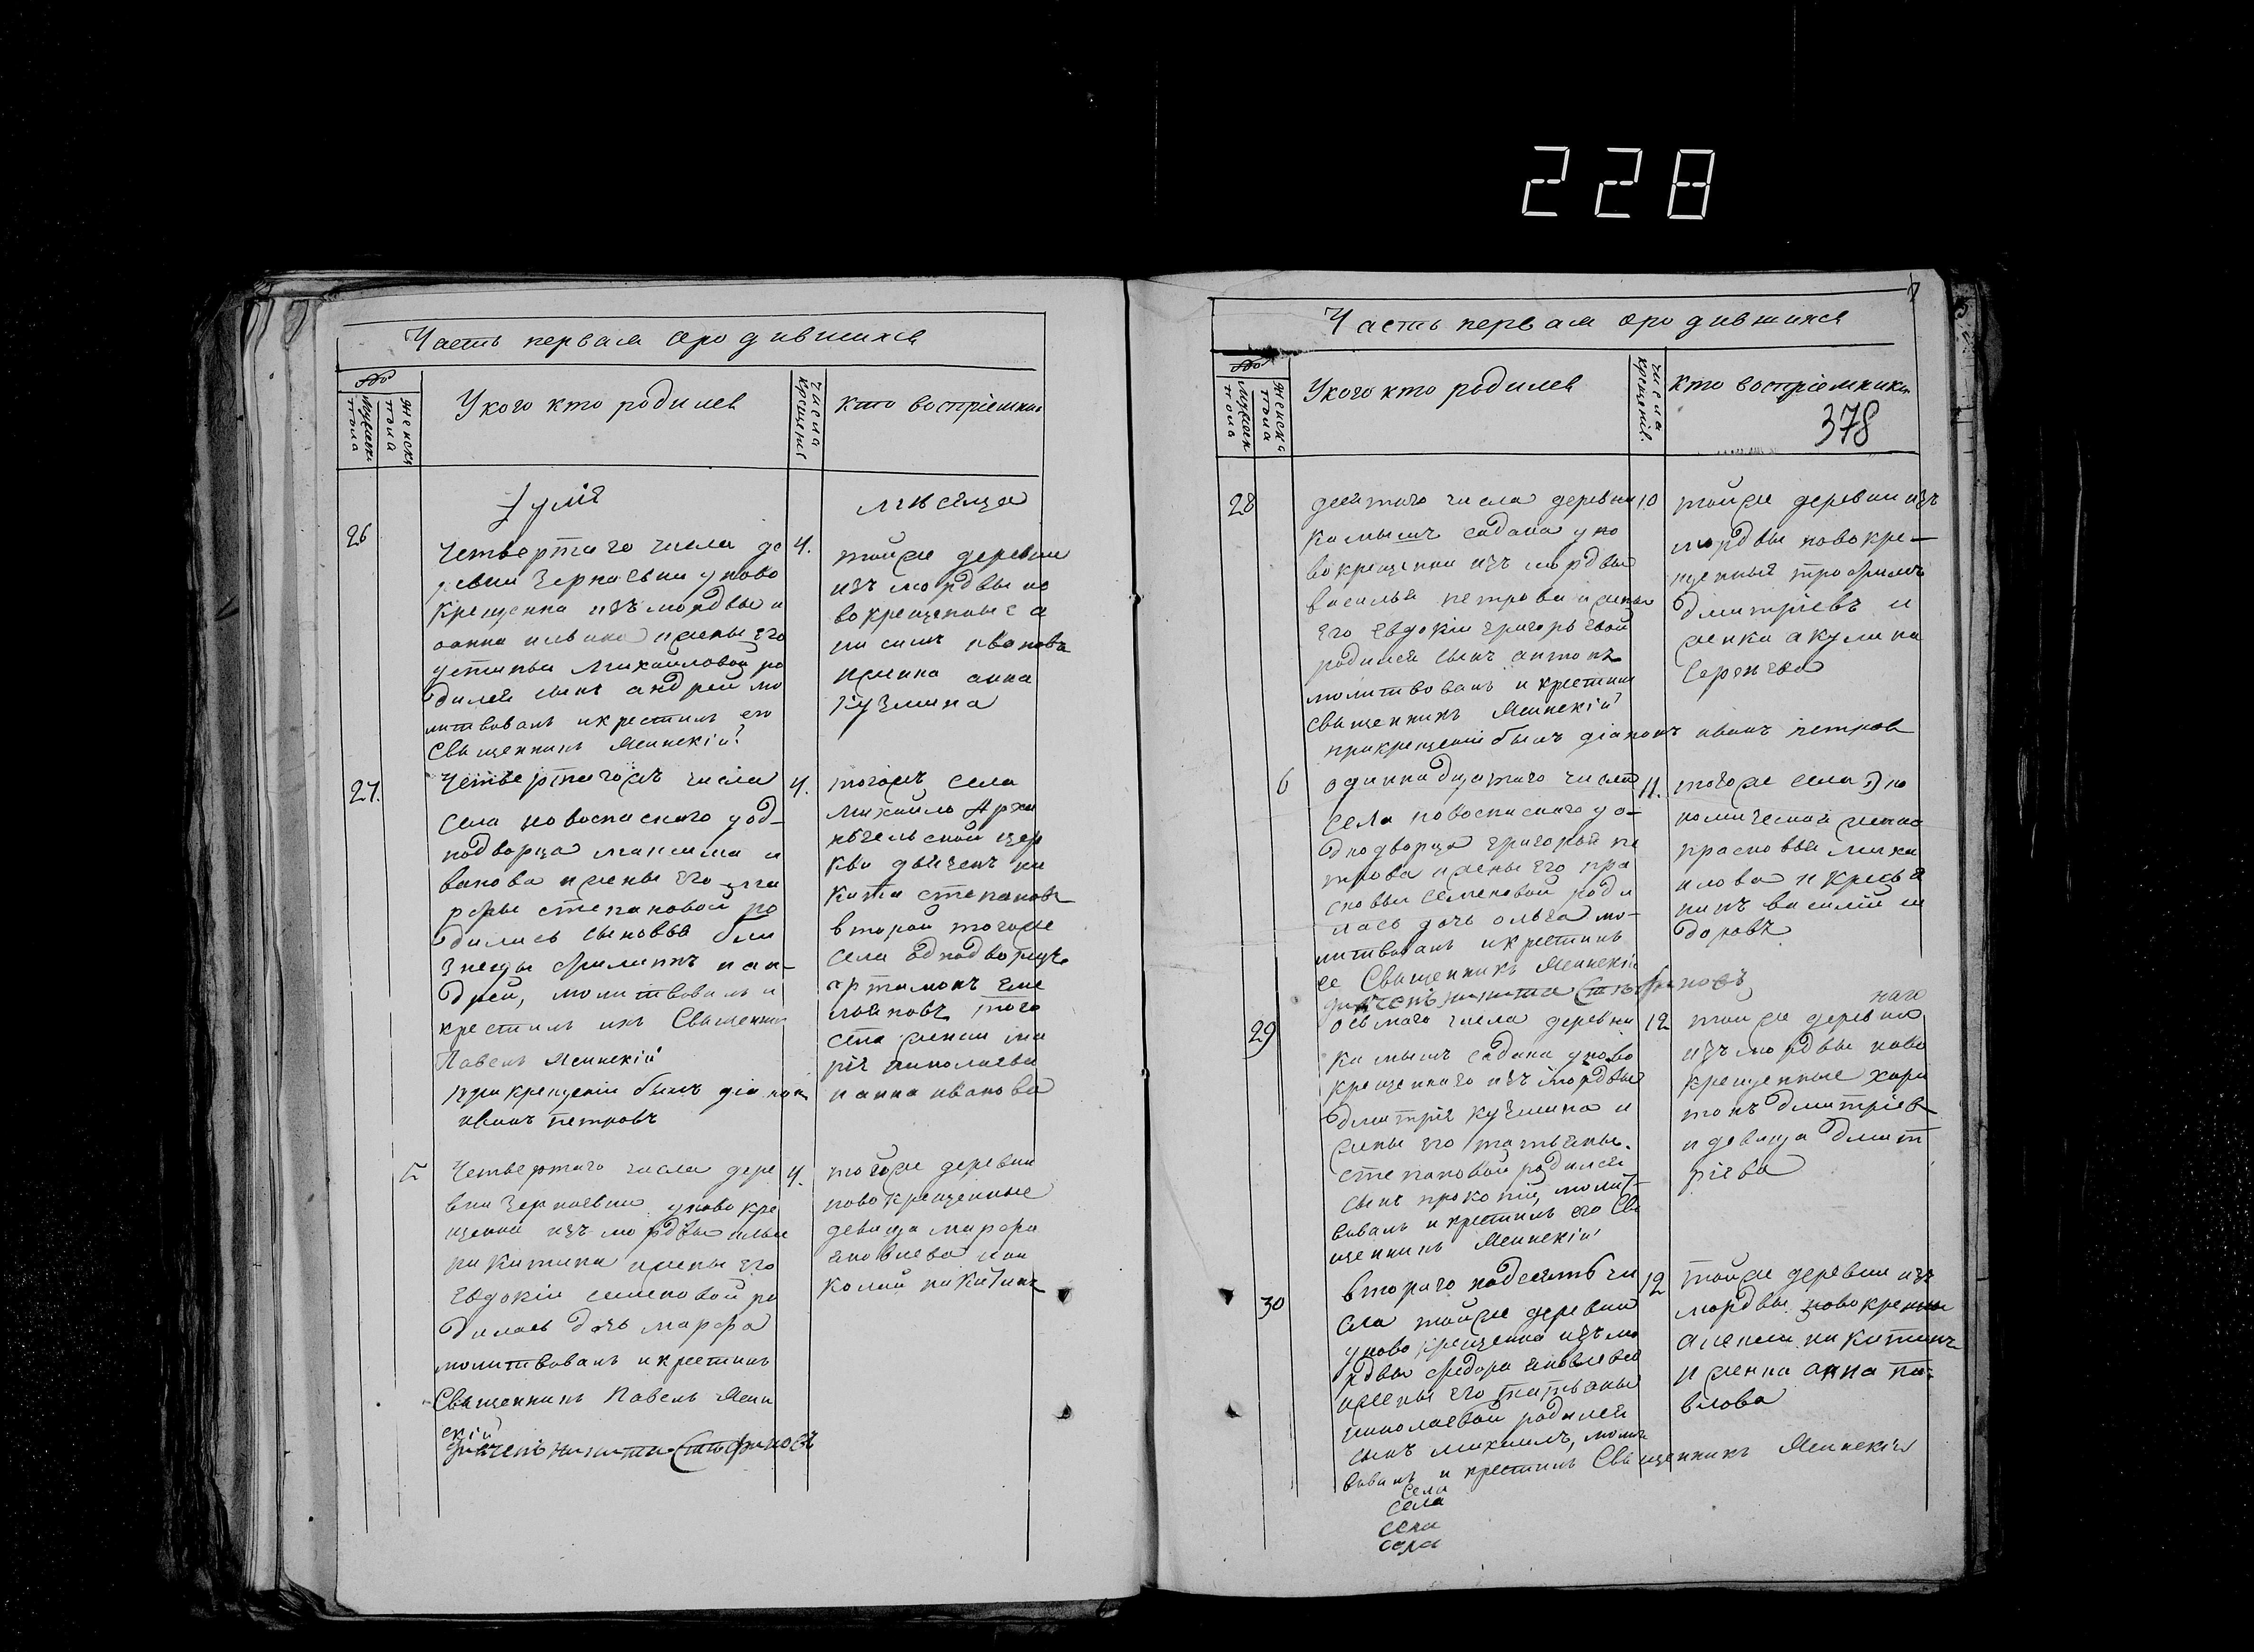 228
Часть первая ородившихся
№
Мужеска пола
Женска пола
Укого кто родился
Числа крещенія
Кто воспріемники
Іуліи
мѣсяца
26
Четвертаго числа де
ревни Зерна
уново
крещенна изъ мордвы и
оанна ильина ижены его
устиньи Михайловой ро
дился сынъ андрей мо
литвовалъ икрестилъ его
Священникъ Ясинскій
4.
тойже деревни
изъ мордвы но
вокрещенные а
нисимъ ивановъ
иженка анна
Кузмина
27.
Четвертагожъ числа
села новоспаскаго уод-
нодворца максима и
ванова ижены его ма
рфы степановой ро
дились сыновья бли
знецы филиппъ иан-
дрей, молитвовалъ и
крестилъ ихъ Священни
Павелъ Ясинскій
при крещеніи былъ діаконъ
иванъ петровъ
4.
тогожъ села
михайло Арха
нгельской цер
кви дьячекъ ни
кита степановъ
второй тогоже
села однодворецъ
артамонъ еме
льяновъ того
села женки ма
рія николаева
ианна иванова
5
Четвертаго числа дере
вни Зерна
уновокре
щенна изъ мордвы ильи
никитина ижены его
Евдокіи семеновой ро
дилась дочь марфа
молитвовалъ икрестилъ
Священникъ Павелъ Ясин
скій
дьячекъ никита Стефановъ
4.
тойже деревни
новокрещенные
девица марфа
яковлева ини
колай никитинъ
Часть первая ородившихся
№
Мужеска пола
Женска пола
Укого кто родился
Числа крещенія.
Кто воспріемники
378
28
десятаго числа деревни
камышъ садака уно
вокрещенна изъ мордвы
василья петрова ижены
его Евдокіи григорьевой
родился сынъ антонъ
молитвовалъ и крестилъ
Священникъ Ясинскій
прикрещеніи былъ діаконъ иванъ петровъ
10
тойже деревни изъ
мордвы новокре-
щенныя трофимъ
дмитріевъ и
женка акулина
Сергеева
6
одиннадцатаго числа
села новоспаскаго уо-
днодворца григорья пе
трова ижены его пра
сковьи семеновой роди
лась дочь ольга мо-
литвовалъ икрестилъ
ее Священникъ Ясинскій
дьячекъ никита Стефановъ
11.
тогоже села эко
номической женка
прасковья миха
илова и кресья
нинъ василій
доровъ
29
осьмаго числа деревни
камышъ садака уново
крещеннаго изъ мордвы
дмитрія кузмина и
жены его татьяны
степановой родился
сынъ прокопій, молит-
вовалъ и крестилъ его Свя
щенникъ Ясинскій
12
наго
тойже деревни
изъ мордвы ново
крещенные хари
тонъ дмитріев
и девица дмит
ріева
30
втораго надесять чи
сла тойже деревни
уновокрещенна изъ мо
рдвы федора яковлева
ижены его татьяны
николаевой родился
сынъ михаилъ, моли
вовалъ и крестилъ Священникъ Ясинскій
12
тойже деревни изъ
мордвы новокрещены
алексей никитинъ
и женка анна па-
влова
села
села
села
села